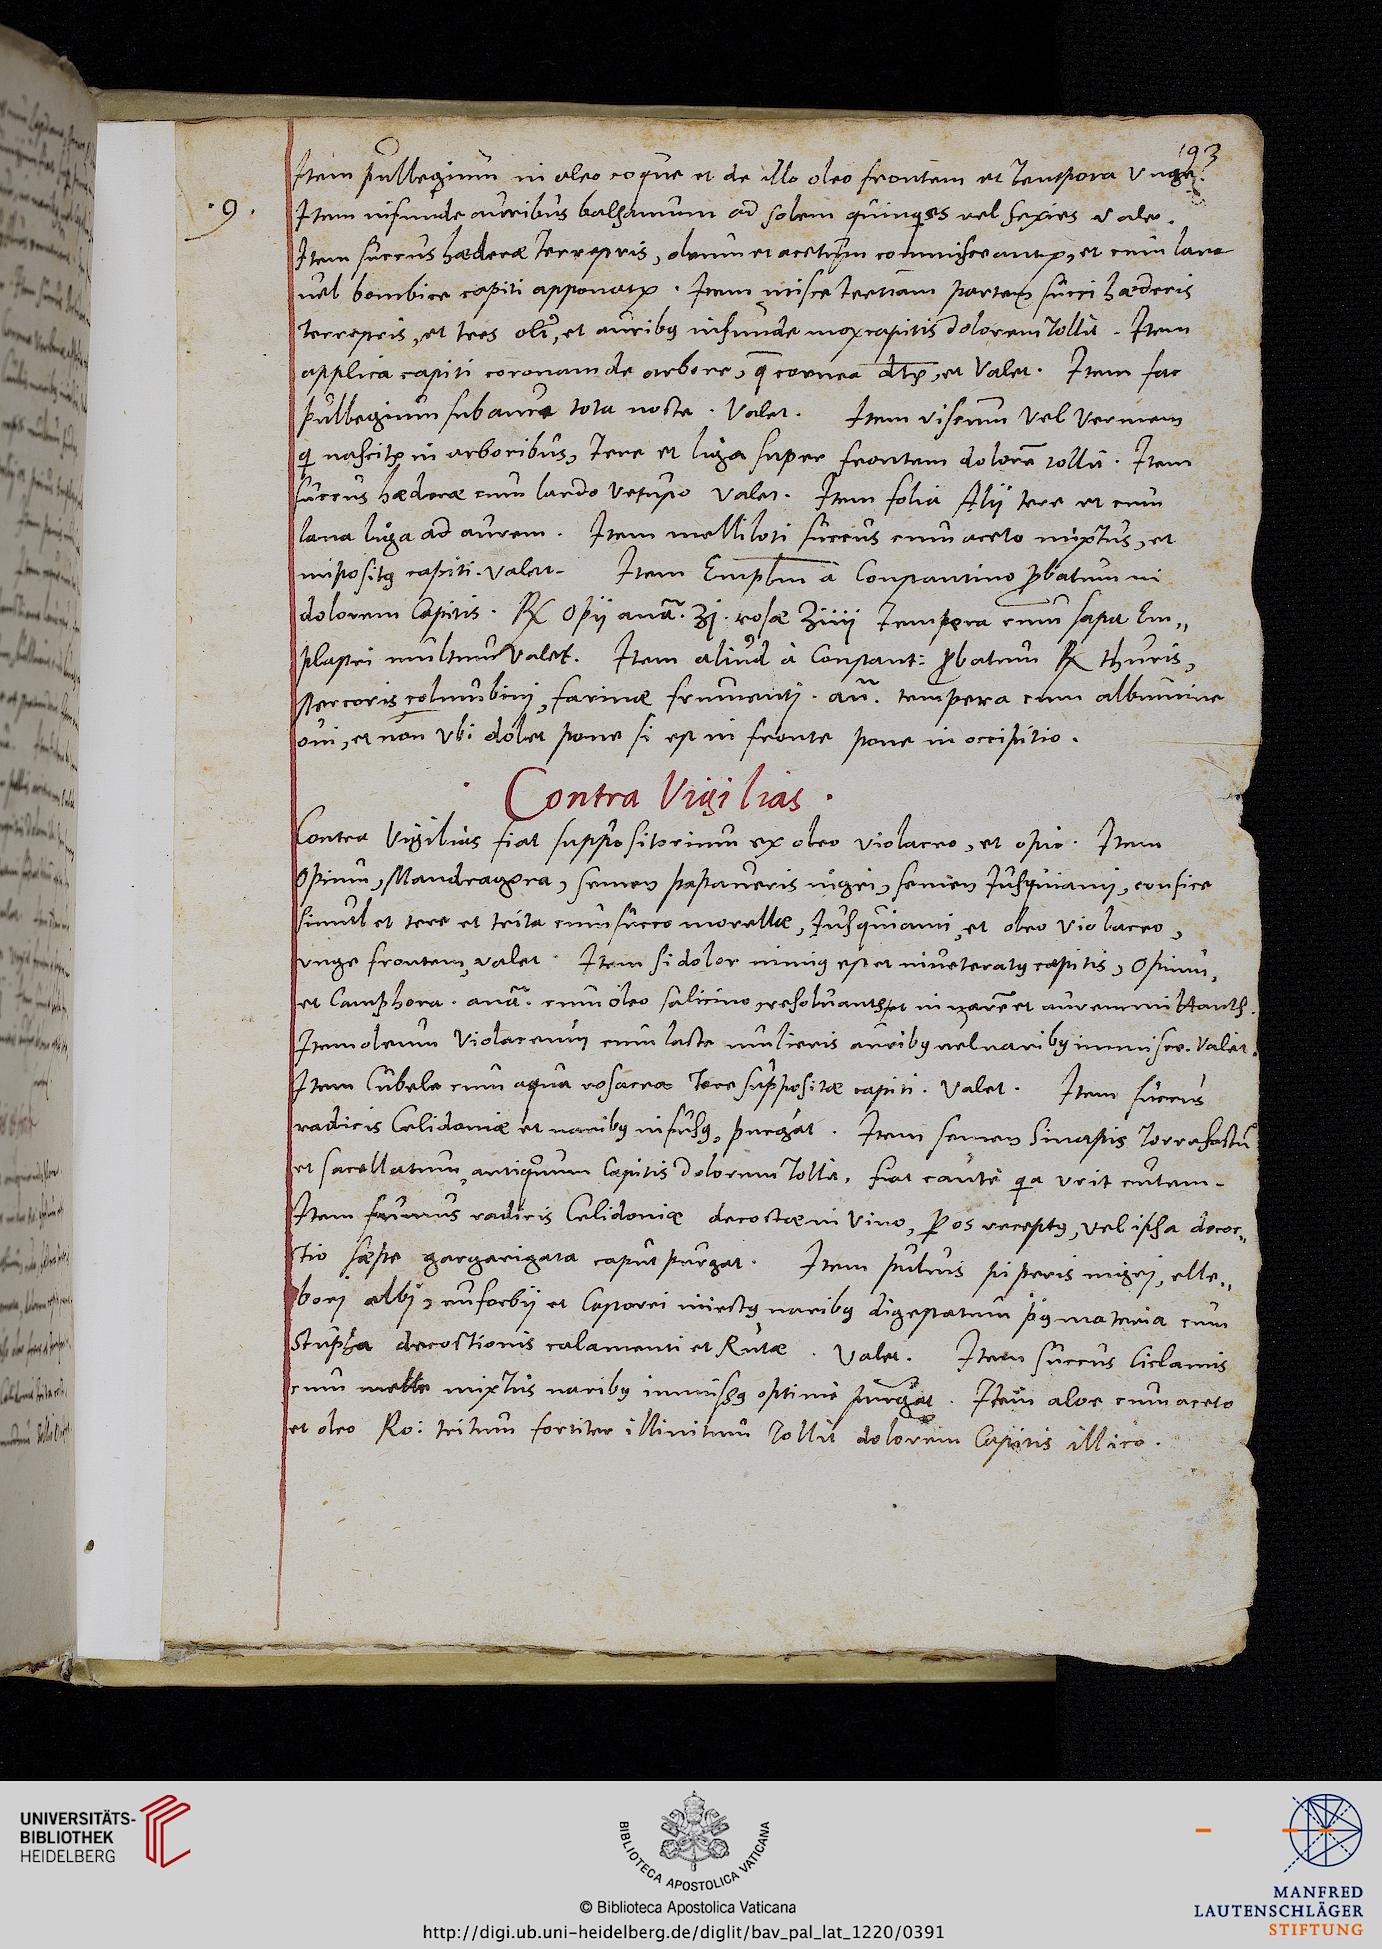 193
.9.
Item pullegium in oleo coque et de illo oleo frontem et Tempora Unge.
Item infunde auribus balsamum ad solem quinquies vel sexies valeo.
Item succus hæderæ terrestris, oleum et acetum commisceantur, et cum lana
vel bombice capiti apponatur. Item misce tertiam partem succi hæderis
terrestris, et tres oli, et auribus infunde mox capitis dolorem tollit. Item
applica capiti coronam de arbore, q̄ cornea dr̄, et Valet. Item fac
pullegium sub aure tota nocte. Valet. Item Vel Vermem
qi nascitur in arboribus, Tere et liga super frontem dolorē tollit. Item
succus hæderæ cum lardo Vetusto valet. Item folia Alij tere et cum
lana liga ad aurem. Item melliloti succus cum aceto mixtus, et
impositus capiti. valet. Item Empl̄m à Constantino probatum in
dolorem Capitis. ℞ Opij anā. ʒj. rosæ ʒiiij Tempera cum sapa Em„
plastri multum valet. Item aliud à Constant: probatum ℞ thuris,
stercoris columbini, farinæ frumenti. an̄. tempera cum albumine
oui, et non Ubi dolet pone si est in fronte pone in occipitio.
Contra Vigilias.
Contra Vigilias fiat suppositorium ex oleo violaceo, et opio. Item
Opium, Mandragora, semen papaueris nigri, semen Jusquiami, confice
simul et tere et trita cum succo morellæ, Jusquiami, et oleo violaceo,
unge frontem, valet. Item si dolor nimius est et inueteratus capitis, Opium,
et Camphora. anā. cum oleo salicino, resoluantur et in narē et aurem mittantur.
Item oleum Violaceum cum lacte mulieris auribus vel naribus immisce. Valet.
Item Cubele cum aqua rosacea Tere suppositæ capiti. Valet. Item succus
radicis Celidoniæ et naribus infusus, purgat. Item semen Sinapis Torrefactū
et sacellatum, antiquum Capitis Dolorem Tollit. fiat cautè qa urit cutem.
Item fumus radicis Celidoniæ decoctæ in Vino, p os receptus, vel ipsa decoc„
tio sæpe gargarigata caput purgat. Item puluis piperis nigri, elle„
borj albj, euforbij et Castorei iniectus naribus digestatum pus materia cum
Stupha decoctionis calamenti et Rutæ. Valet. Item succus Ciclamis
cum melle mixtus naribus immissus optimè purgat. Item aloe cum aceto
et oleo Ro: tritum fortiter illinitum Tollit dolorem Capitis illico.
UNIVERSITÄTS-
BIBLIOTHEK
HEIDELBERG
BIBLIOTECA APOSTOLICA VATICANA
© Biblioteca Apostolica Vaticana
http://digi.ub.uni-heidelberg.de/diglit/bav_pal_lat_1220/0391
MANFRED
LAUTENSCHLÄGER
STIFTUNG